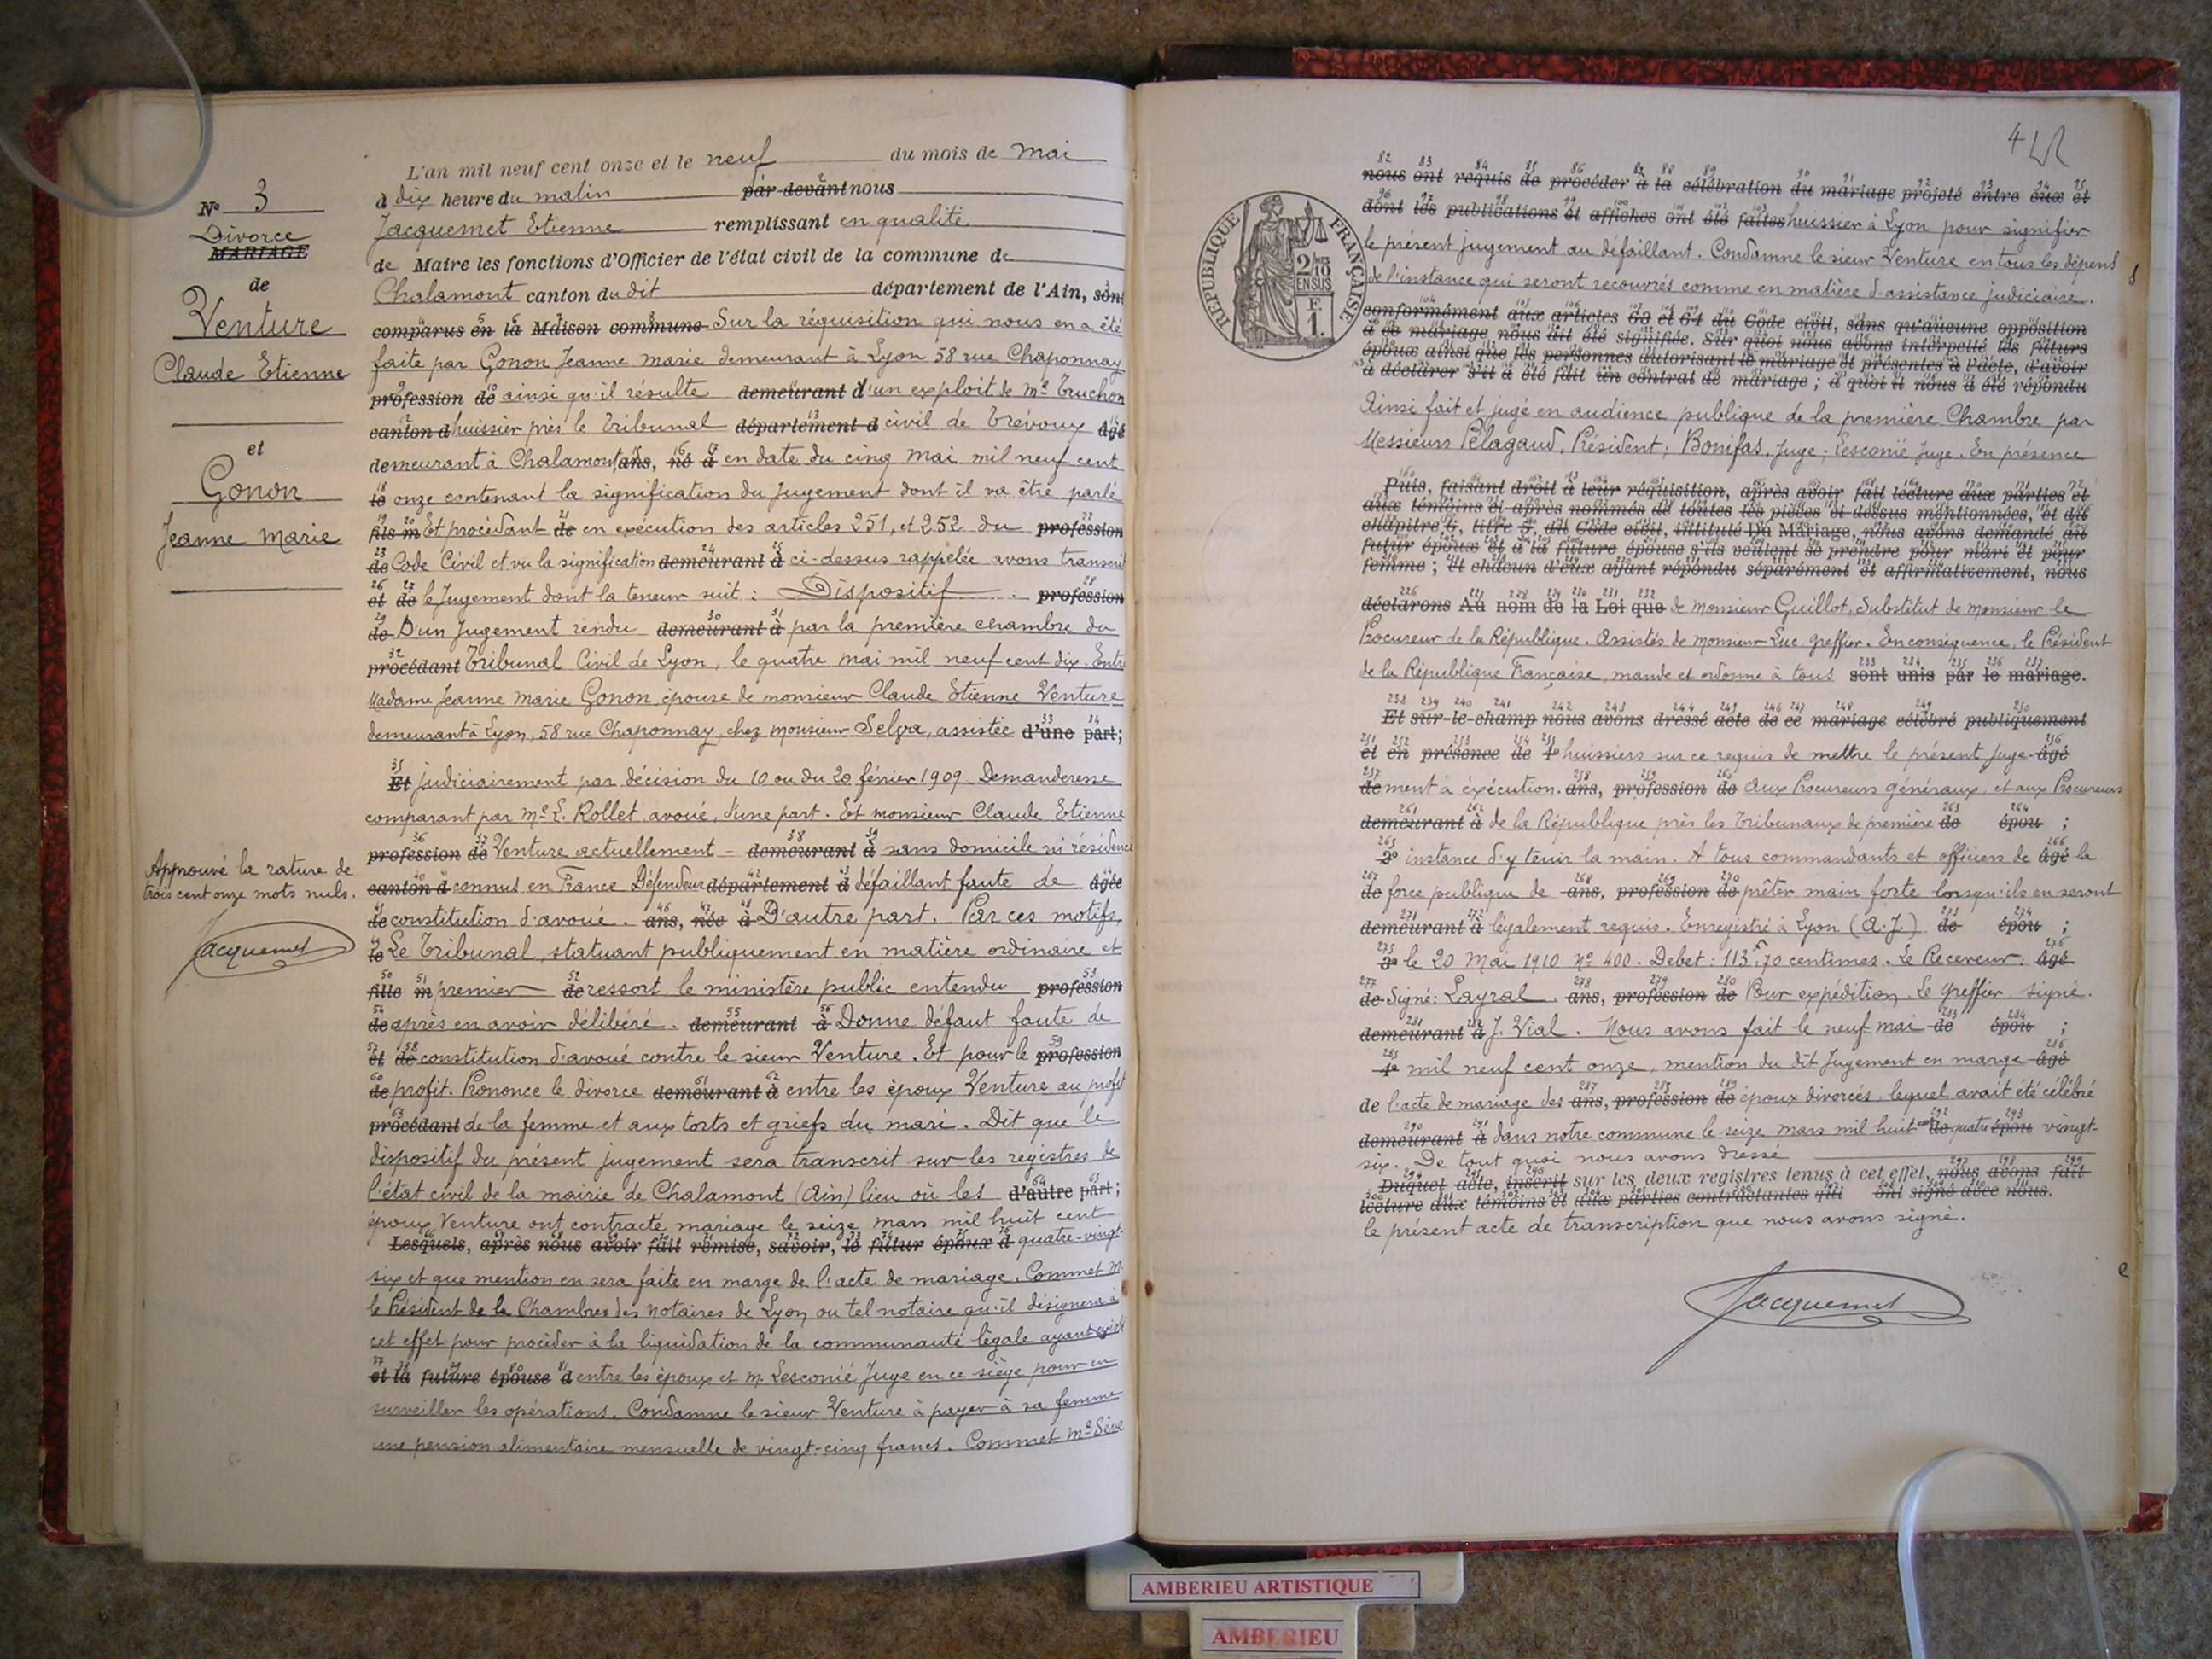 N° 3
Divorce
MARIAGE
de
Venture
Claude Etienne
et
Gonon
Jeanne Marie
Approuvé la rature de
trois cent onze mots nuls.
Jacquemet
L'an mil neuf cent onze et le neuf du mois de Mai
à dix heure du matin par-devant nous
Jacquemet Etienne remplissant en qualité
de Maire les fonctions d'Officier de l'état civil de la commune de
Chalamont canton du dit département de l'Ain, sont
comparus en la Maison commune Sur la réquisition qui nous en a été
faite par Gonon Jeanne Marie demeurant à Lyon 58 rue Chaponnay
profession de ainsi qu'il résulte demeurant d'un exploit de Me Truchon
canton d huissier près le Tribunal département d civil de Trévoux âgé
demeurant à Chalamont ans, né à en date du cinq Mai mil neuf cent
le onze contenant la signification du Jugement dont il va être parlé
fils m Et procédant de en exécution des articles 251, et 252 du profession
de Code Civil et vu la signification demeurant à ci-dessus rappelée avons transcrit
et de le Jugement dont la teneur suit : Dispositif profession
de D'un Jugement rendu demeurant à par la première chambre du
procédant Tribunal Civil de Lyon, le quatre Mai mil neuf cent dix. Entre
Madame Jeanne Marie Gonon épouse de monsieur Claude Etienne Venture
demeurant à Lyon, 58 rue Chaponnay, chez monsieur Selva, assistée d'une part;
Et judiciairement par décision du 10 ou du 20 février 1909. Demanderesse
comparant par Me L. Rollet avoué, d'une part. Et monsieur Claude Etienne
profession de Venture actuellement - demeurant à sans domicile ni résidence
canton d connus en France Défendeur département d défaillant faute de âgée
de constitution d'avoué. ans, née à D'autre part. Par ces motifs,
le Le Tribunal, statuant publiquement en matière ordinaire et
fille m premier de ressort le ministère public entendu profession
de après en avoir délibéré. demeurant à Donne défaut faute de
et de constitution d'avoué contre le sieur Venture. Et pour le profession
de profit. Prononce le divorce demeurant à entre les époux Venture au profit
procédant de la femme et aux torts et griefs du mari. Dit que le
dispositif du présent jugement sera transcrit sur les registres de
l'état civil de la mairie de Chalamont (Ain) lieu où les d'autre part;
époux Venture ont contracté mariage le seize mars mil huit cent
Lesquels, après nous avoir fait remise, savoir, le futur époux d quatre-vingt-
six et que mention en sera faite en marge de l'acte de mariage. Commet M.
le Président de la Chambre des Notaires de Lyon ou tel notaire qu'il désignera à
cet effet pour procéder à la liquidation de la communauté légale ayant existé
et la future épouse d entre les époux et M. Lesconié Juge en ce siège pour en
surveiller les opérations. Condamne le sieur Venture à payer à sa femme
une pension alimentaire mensuelle de vingt-cinq francs. Commet Me Sève
RÉPUBLIQUE FRANÇAISE
2/10 EN SUS
F. 1.
nous ont requis de procéder à la célébration du mariage projeté entre eux et
dont les publications et affiches ont été faites huissier à Lyon pour signifier
le présent jugement au défaillant. Condamne le sieur Venture en tous les dépens
de l'instance qui seront recouvrés comme en matière d'assistance judiciaire.
conformément aux articles 63 et 64 du Code civil, sans qu'aucune opposition
à ce mariage nous ait été signifiée. Sur quoi nous avons interpellé les futurs
époux ainsi que les personnes autorisant le mariage et présentes à l'acte, d'avoir
à déclarer s'il a été fait un contrat de mariage ; à quoi il nous a été répondu
Ainsi fait et jugé en audience publique de la première Chambre par
Messieurs Pelagaud, Président ; Bonifas, Juge ; Lesconié Juge. En présence
Puis, faisant droit à leur réquisition, après avoir fait lecture aux parties et
aux témoins ci-après nommés de toutes les pièces ci-dessus mentionnées, et du
chapitre 6, titre 5, du Code civil, intitulé Du Mariage, nous avons demandé au
futur époux et à la future épouse s'ils veulent se prendre pour mari et pour
femme ; et chacun d'eux ayant répondu séparément et affirmativement, nous
déclarons Au nom de la Loi que de Monsieur Guillot, Substitut de Monsieur le
Procureur de la République. Assistés de Monsieur Luc greffier. En conséquence, le Président
de la République Française mande et ordonne à tous sont unis par le mariage.
Et sur-le-champ nous avons dressé acte de ce mariage célébré publiquement
et en présence de 1° huissiers sur ce requis de mettre le présent Juge- âgé
de ment à éxécution. ans, profession de Aux Procureurs généraux et aux Procureurs
demeurant à de la République près les Tribunaux de première de épou ;
2° instance d'y tenir la main. A tous commandants et officiers de âgé la
de force publique de ans, profession de prêter main forte lorsqu'ils en seront
demeurant à légalement requis. Enregistré à Lyon (A.J.) de épou ;
3° le 20 Mai 1910 N° 400. Debet : 113f,70 centimes. Le Receveur. âgé
de Signé : Layral. ans, profession de Pour expédition. Le greffier signé.
demeurant à J. Vial. Nous avons fait le neuf mai de épou ;
4° mil neuf cent onze, mention du dit Jugement en marge âgé
de l'acte de mariage des ans, profession de époux divorcés lequel avait été célébré
demeurant à dans notre commune le seize mars mil huit cent de quatre épou vingt-
six. De tout quoi nous avons dressé
Duquel acte, inscrit sur les deux registres tenus à cet effet, nous avons fait
lecture aux témoins et aux parties contractantes qui ont signé avec nous.
le présent acte de transcription que nous avons signé.
Jacquemet
AMBERIEU ARTISTIQUE
AMBERIEU